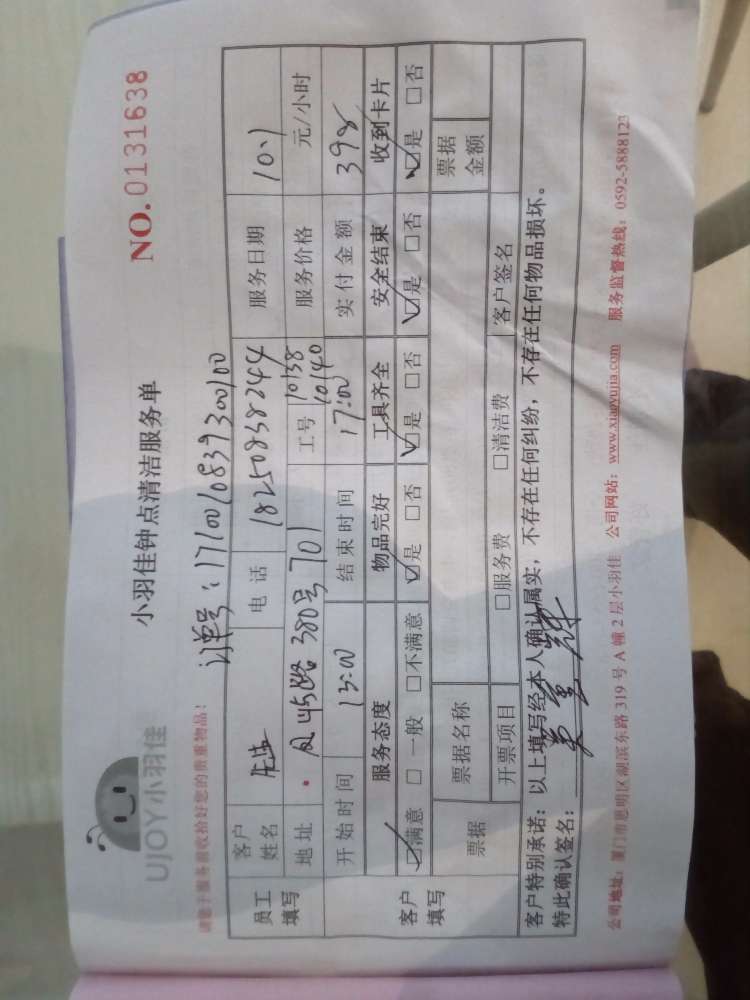 UJOY小羽佳
小羽佳钟点清洁服务单
NO.0131638
请您于服务前收拾好您的贵重物品！
订单号：1710010839300100
员工填写 客户姓名 先生 电话 18250838244 服务日期 10.1
地址 380号701 工号 10138 10140 服务价格 元/小时
开始时间 13:00 结束时间 17:00 实付金额 398
客户填写 服务态度 物品完好 工具齐全 安全结束 收到卡片
☑满意 □一般 □不满意 ☑是 □否 ☑是 □否 ☑是 □否 ☑是 □否
票据 票据名称 票据金额
开票项目 □服务费 □清洁费 客户签名
客户特别承诺：以上填写经本人确认属实，不存在任何纠纷，不存在任何物品损坏。
特此确认签名：
公司地址：厦门市思明区湖滨东路319号A幢2层小羽佳 公司网站：www.xiaoyujia.com 服务监督热线：0592-5888123